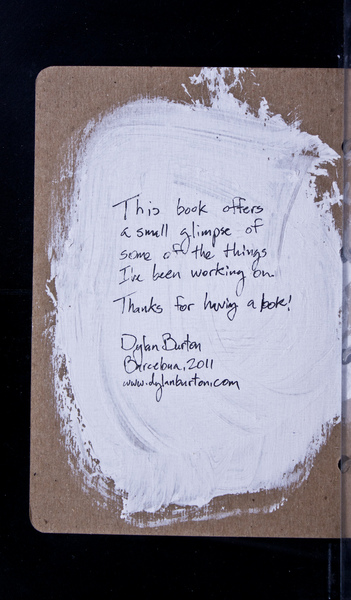 This book offers
a small glimpse of
some of the things
I've been working on.
Thanks for having a look!
Dylan Burton
Barcelona, 2011
www.dylanburton.com